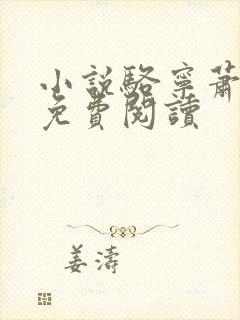 小說駱寧蕭
免費閱讀
姜濤